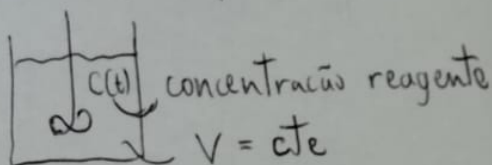 C(t) concentração reagente
V = cte